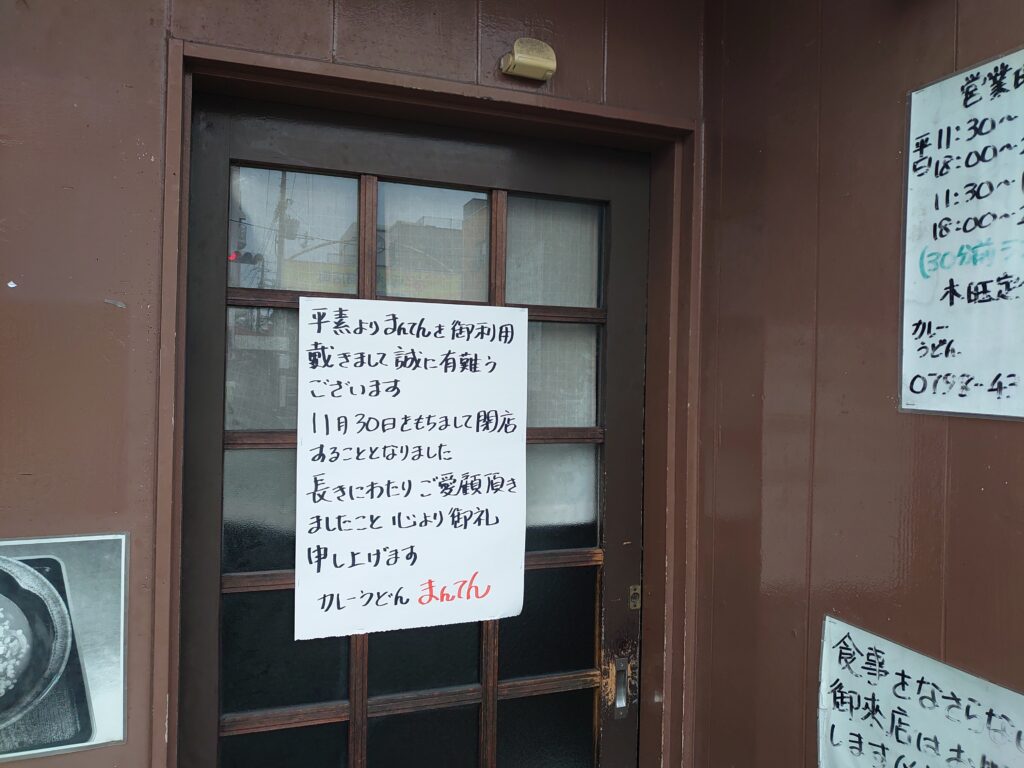 平素よりまんてんを御利用
戴きまして誠に有難う
ございます
11月30日をもちまして閉店
することとなりました
長きにわたりご愛顧頂き
ましたこと 心より御礼
申し上げます
カレーうどん まんてん
営業
平日 11:30〜
18:00〜
11:30〜
18:00〜
(30分前
木曜定
カレー
うどん
0798-43
食事をなさらな
御来店はお
します